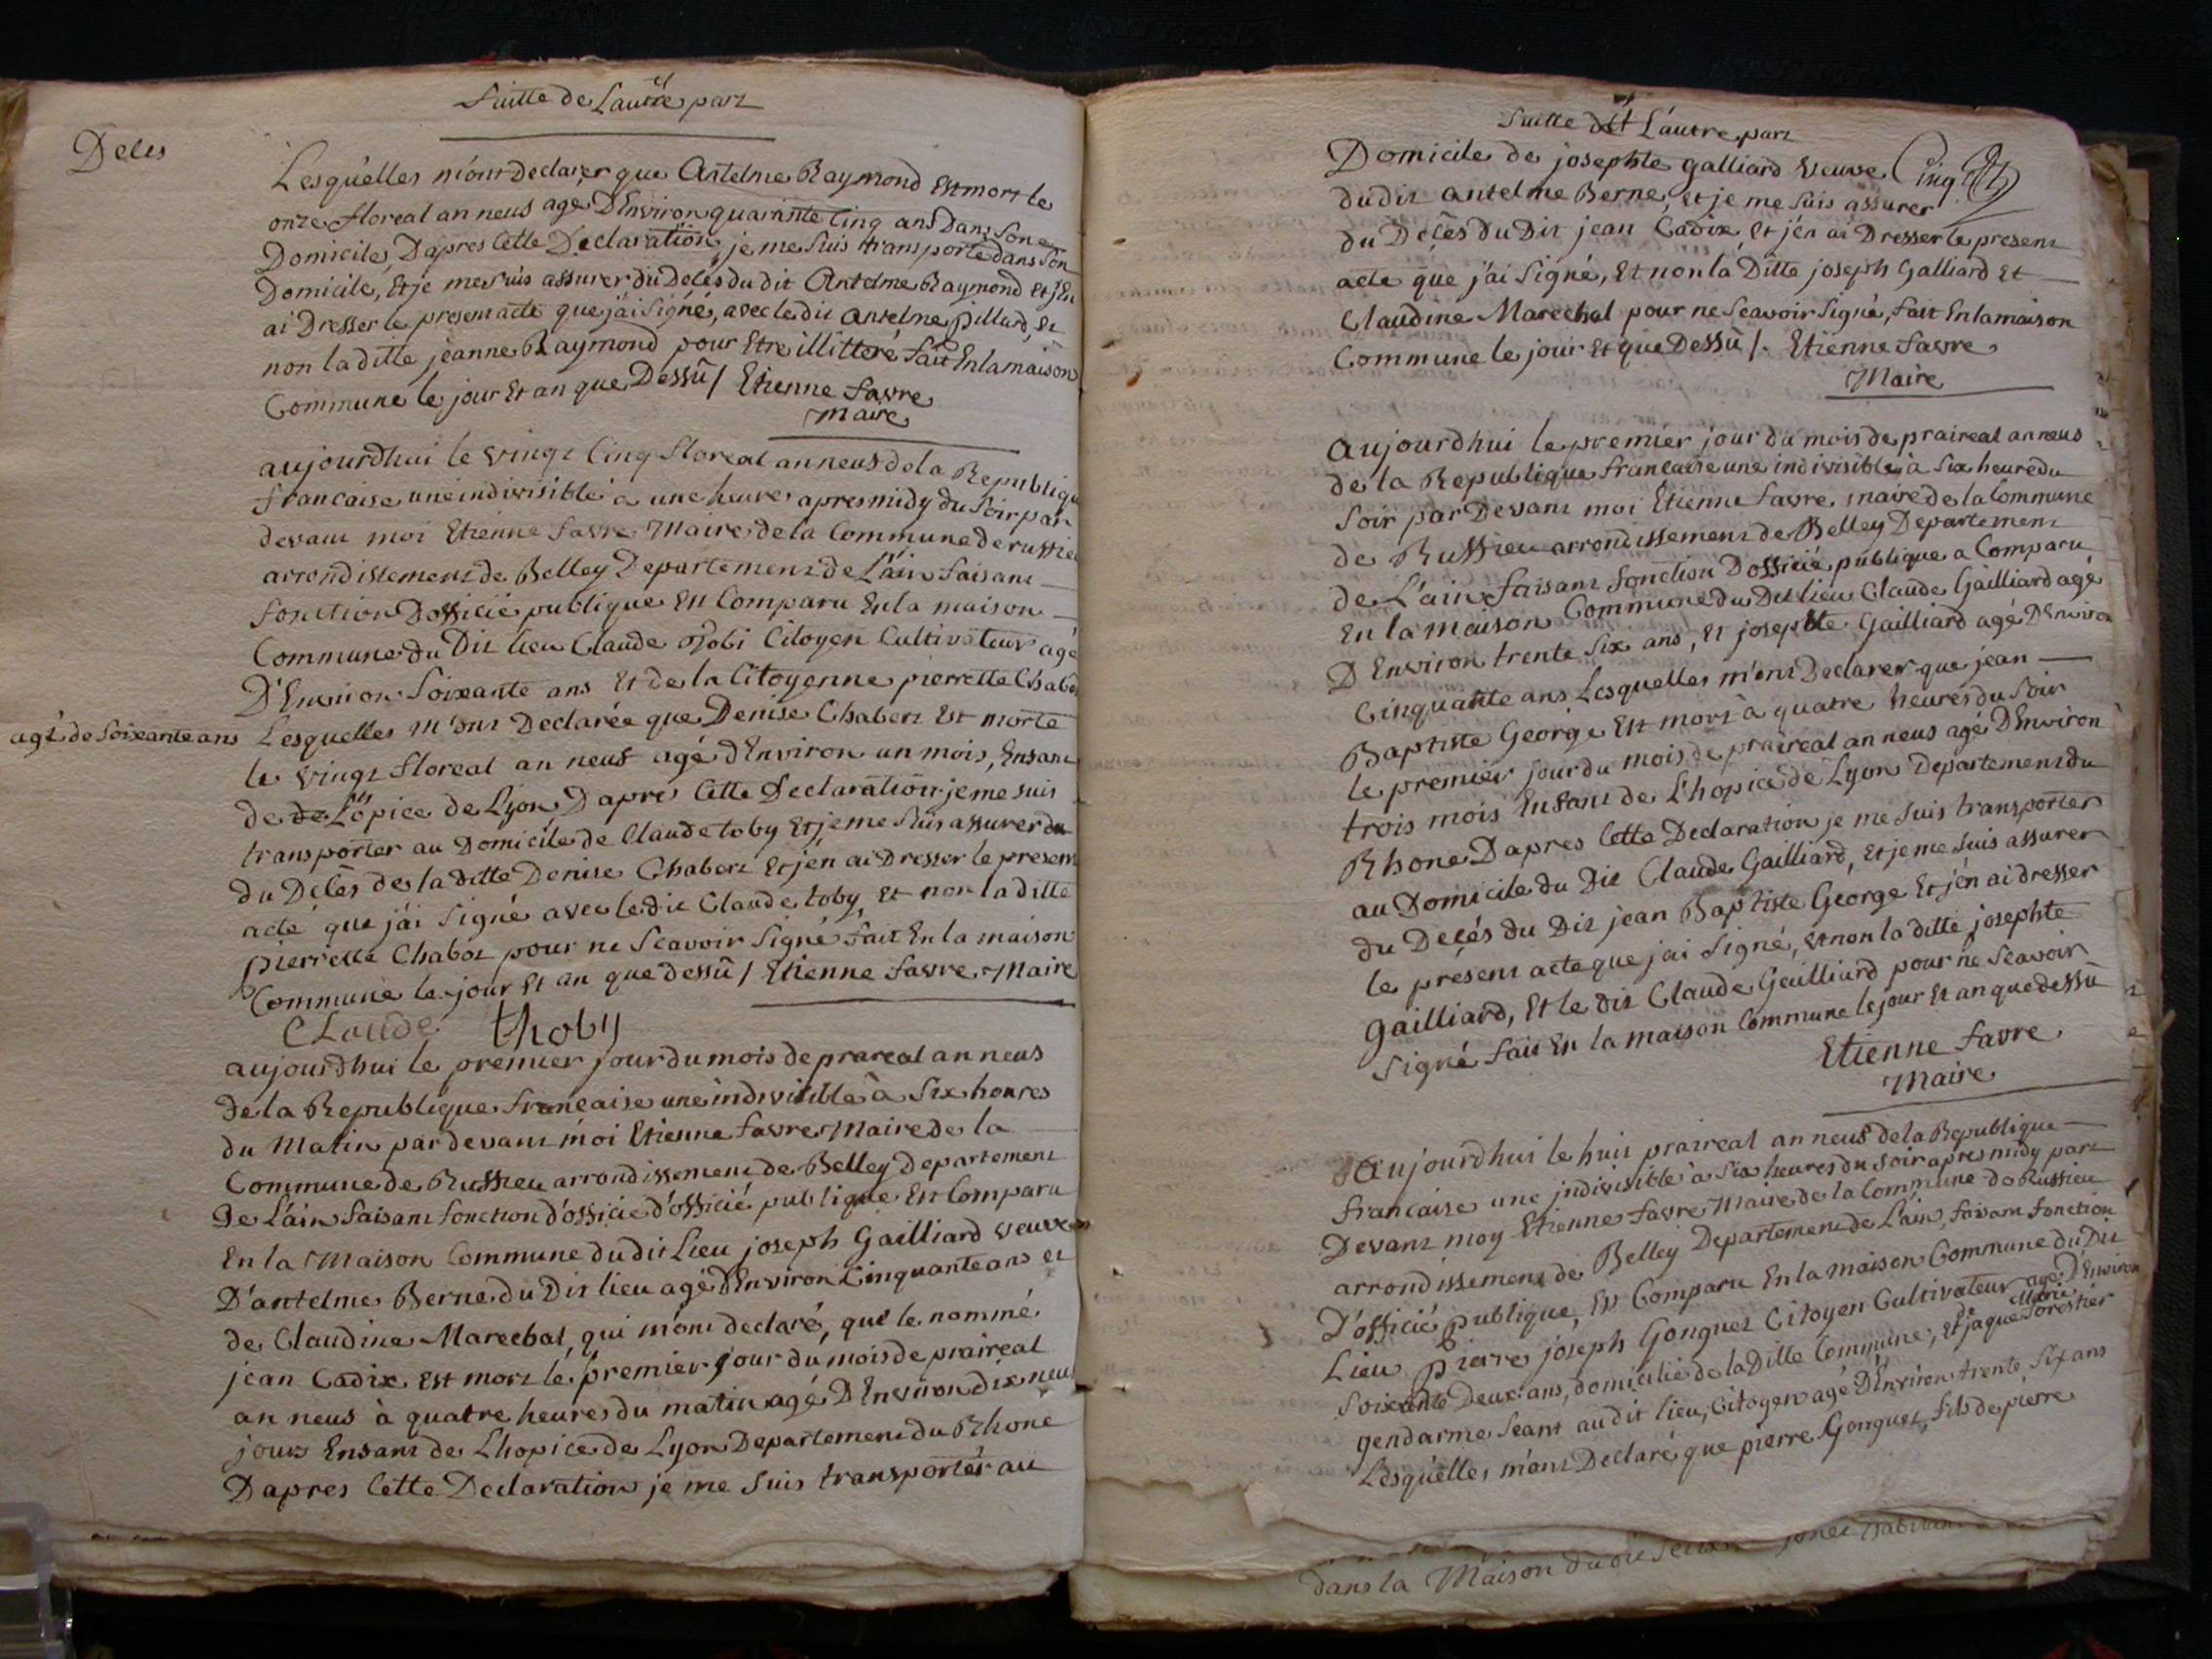 Suitte de Lautre part
Deles
Lesquelles m'ont declarer que Antelme Raymond Est mort le
onze floreal an neus age D'Environ quarante Cinq ans Dans Son
Domicile, D'apres Cette Declaration, je me suis transporté dans Son
Domicile, Et je me suis assurer du Deles du dit Antelme Raymond Et j'En
ai Dresser le present acte que j'ai Signé, avec le dit antelme pillard, Et
non la ditte jeanne Raymond pour Etre illitteré fait En la maison
Commune le jour Et an que Dessû / Etienne favre
Maire
aujourdhui le vingt Cinq floreal an neus de la Republique
francaise une indivisible a une heure apres midy du Soir par
devant moi Etienne favre Maire de la Commune de russieu
arrondissement de Belley Departement de L'ain faisant
fonction D'officié publique En Comparu En la maison
Commune du Dit lieu Claude Tobi Citoyen Cultivateur agé
D'Environ Soixante ans Et de la Citoyenne pierrette Chabot
agé de Soixante ans Lesquelles m'ont Declarée que Denise Chabert Est morte
le vingt floreal an neuf agé d'Environ un mois, Enfant
de de L'opice de Lyon, D'apre Cette Declaration je me suis
transporter au Domicile de Claude toby Et je me suis assurer du
du Decês de la ditte Denise Chabert Et j'en ai Dresser le present
acte que j'ai Signé avec le dit Claude toby, Et non la ditte
pierrette Chabot pour ne Scavoir Signé fait En la maison
Commune le jour Et an que dessû / Etienne favre Maire
CLaude thoby
aujourdhui le premier jour du mois de prareal an neus
de la Republique francaise une indivisible à Six houres
du Matin par devant moi Etienne favre Maire de la
Commune de Russieu arrondissement de Belley Departement
De L'ain faisant fonction d'officié d'officié publique En Comparu
En la Maison Commune du dit Lieu joseph Gailliard veuve
D'antelme Berne du Dit lieu agé D'Environ Cinquante ans et
de Claudine Marechal, qui m'ont declaré, que le nommé
jean Cadix Est mort le premier jour du mois de praireal
an neus à quatre heures du matin agé D'Environ dix neuf
jours Enfant de L'hopice de Lyon Departement du Rhone
D'apres Cette Declaration je me suis transportér au
Suitte dEt L'autre part
Domicile de josephte galliard veuve Cinq
du dit antelme Berne, Et je me suis assurer
du Décês du Dit jean Cadix, Et j'en ai Dresser le present
acte que j'ai Signé, Et non la Ditte joseph Galliard Et
Claudine Marechal pour ne Scavoir Signé, fait En la maison
Commune le jour Et que Dessû /. Etienne favre
Maire
aujourdhui le premier jour du mois de praireal an neus
de la Republique francaise une indivisible à Six heure du
Soir par Devant moi Etienne favre, maire de la Commune
de Russieu arrondissement de Belley Departement
de L'ain faisant fonction D'officié publique a Comparu
En la maison Commune du Dit lieu Claude Gailliard agé
D'Environ trente Six ans, Et josephte Gailliard agé D'Environ
Cinquante ans Lesquelles m'ont Declarer que jean
Baptiste George Est mort à quatre heures du Soir
le premier jour du mois de praireal an neus agé D'Environ
trois mois Enfant de L'hopice de Lyon Departement du
Rhone D'apres Cette Declaration je me suis transporter
au Domicile du Dit Claude Gailliard, Et je me suis assurer
du Decés du Dit jean Baptiste George Et j'en ai dresser
le present acte que j'ai Signé, Et non la ditte josephte
Gailliard, Et le dit Claude Gailliard pour ne Scavoir
Signé fait En la maison Commune le jour Et an que dessû
Etienne favre
Maire
Aujourdhui le huit praireal an neuf de la Republique
francaise une jndivisible à Six heures du Soir apres midy part
Devant moy Etienne favre Maire de la Commune de Russieu
arrondissement de Belley Departement de L'ain, faisant fonction
D'officié publique, En Comparu En la maison Commune du Dit
Lieu pierre joseph Gonguet Citoyen Cultivateur agé D'Environ
Soixante Deux ans, domicilié de la Ditte Commune, Et de jaque Marie forestier
gendarme Seant au dit lieu, Citoyen agé D'Environ trente Six ans
Lesquelles m'ont Declaré que pierre Gonguet, fils de pierre
dans la Maison du dit